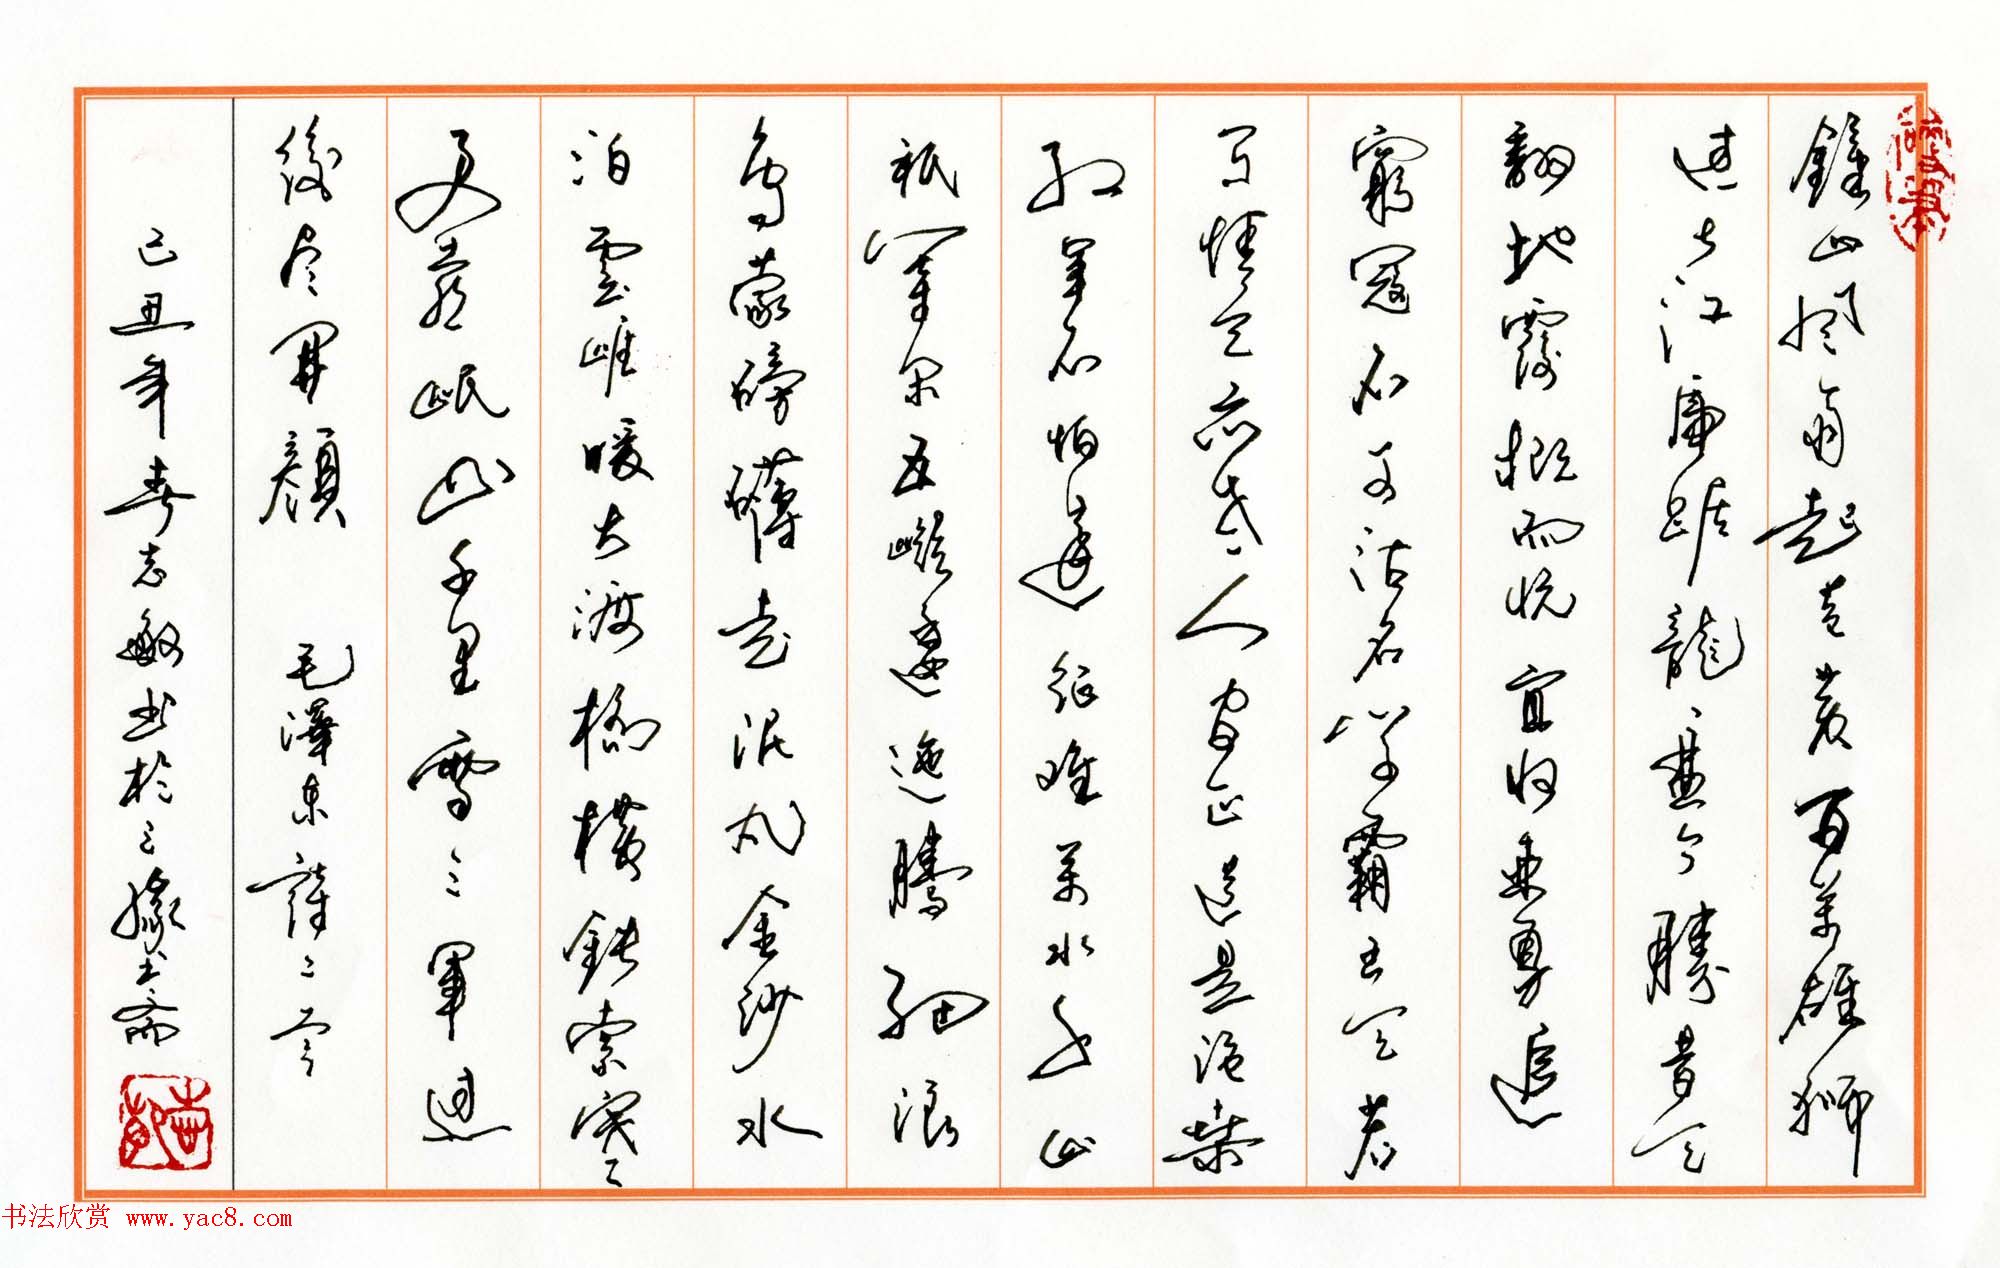 鐘山風雨起蒼黄百萬雄師
過大江虎踞龍盤今勝昔天
翻地覆慨而慷宜將乘勇追
窮寇不可沽名學霸王天若
有情天亦老人間正道是滄桑
紅軍不怕遠征難萬水千山
祇等閑五嶺逶迤騰細浪
烏蒙磅礴走泥丸金沙水
泊雲崖暖大渡橋橫鐵索寒
更喜岷山千里雪三軍過
後尽開顏 毛澤東詩二首
己丑年春志敏书於三緣书斋
书法欣赏 www.yac8.com